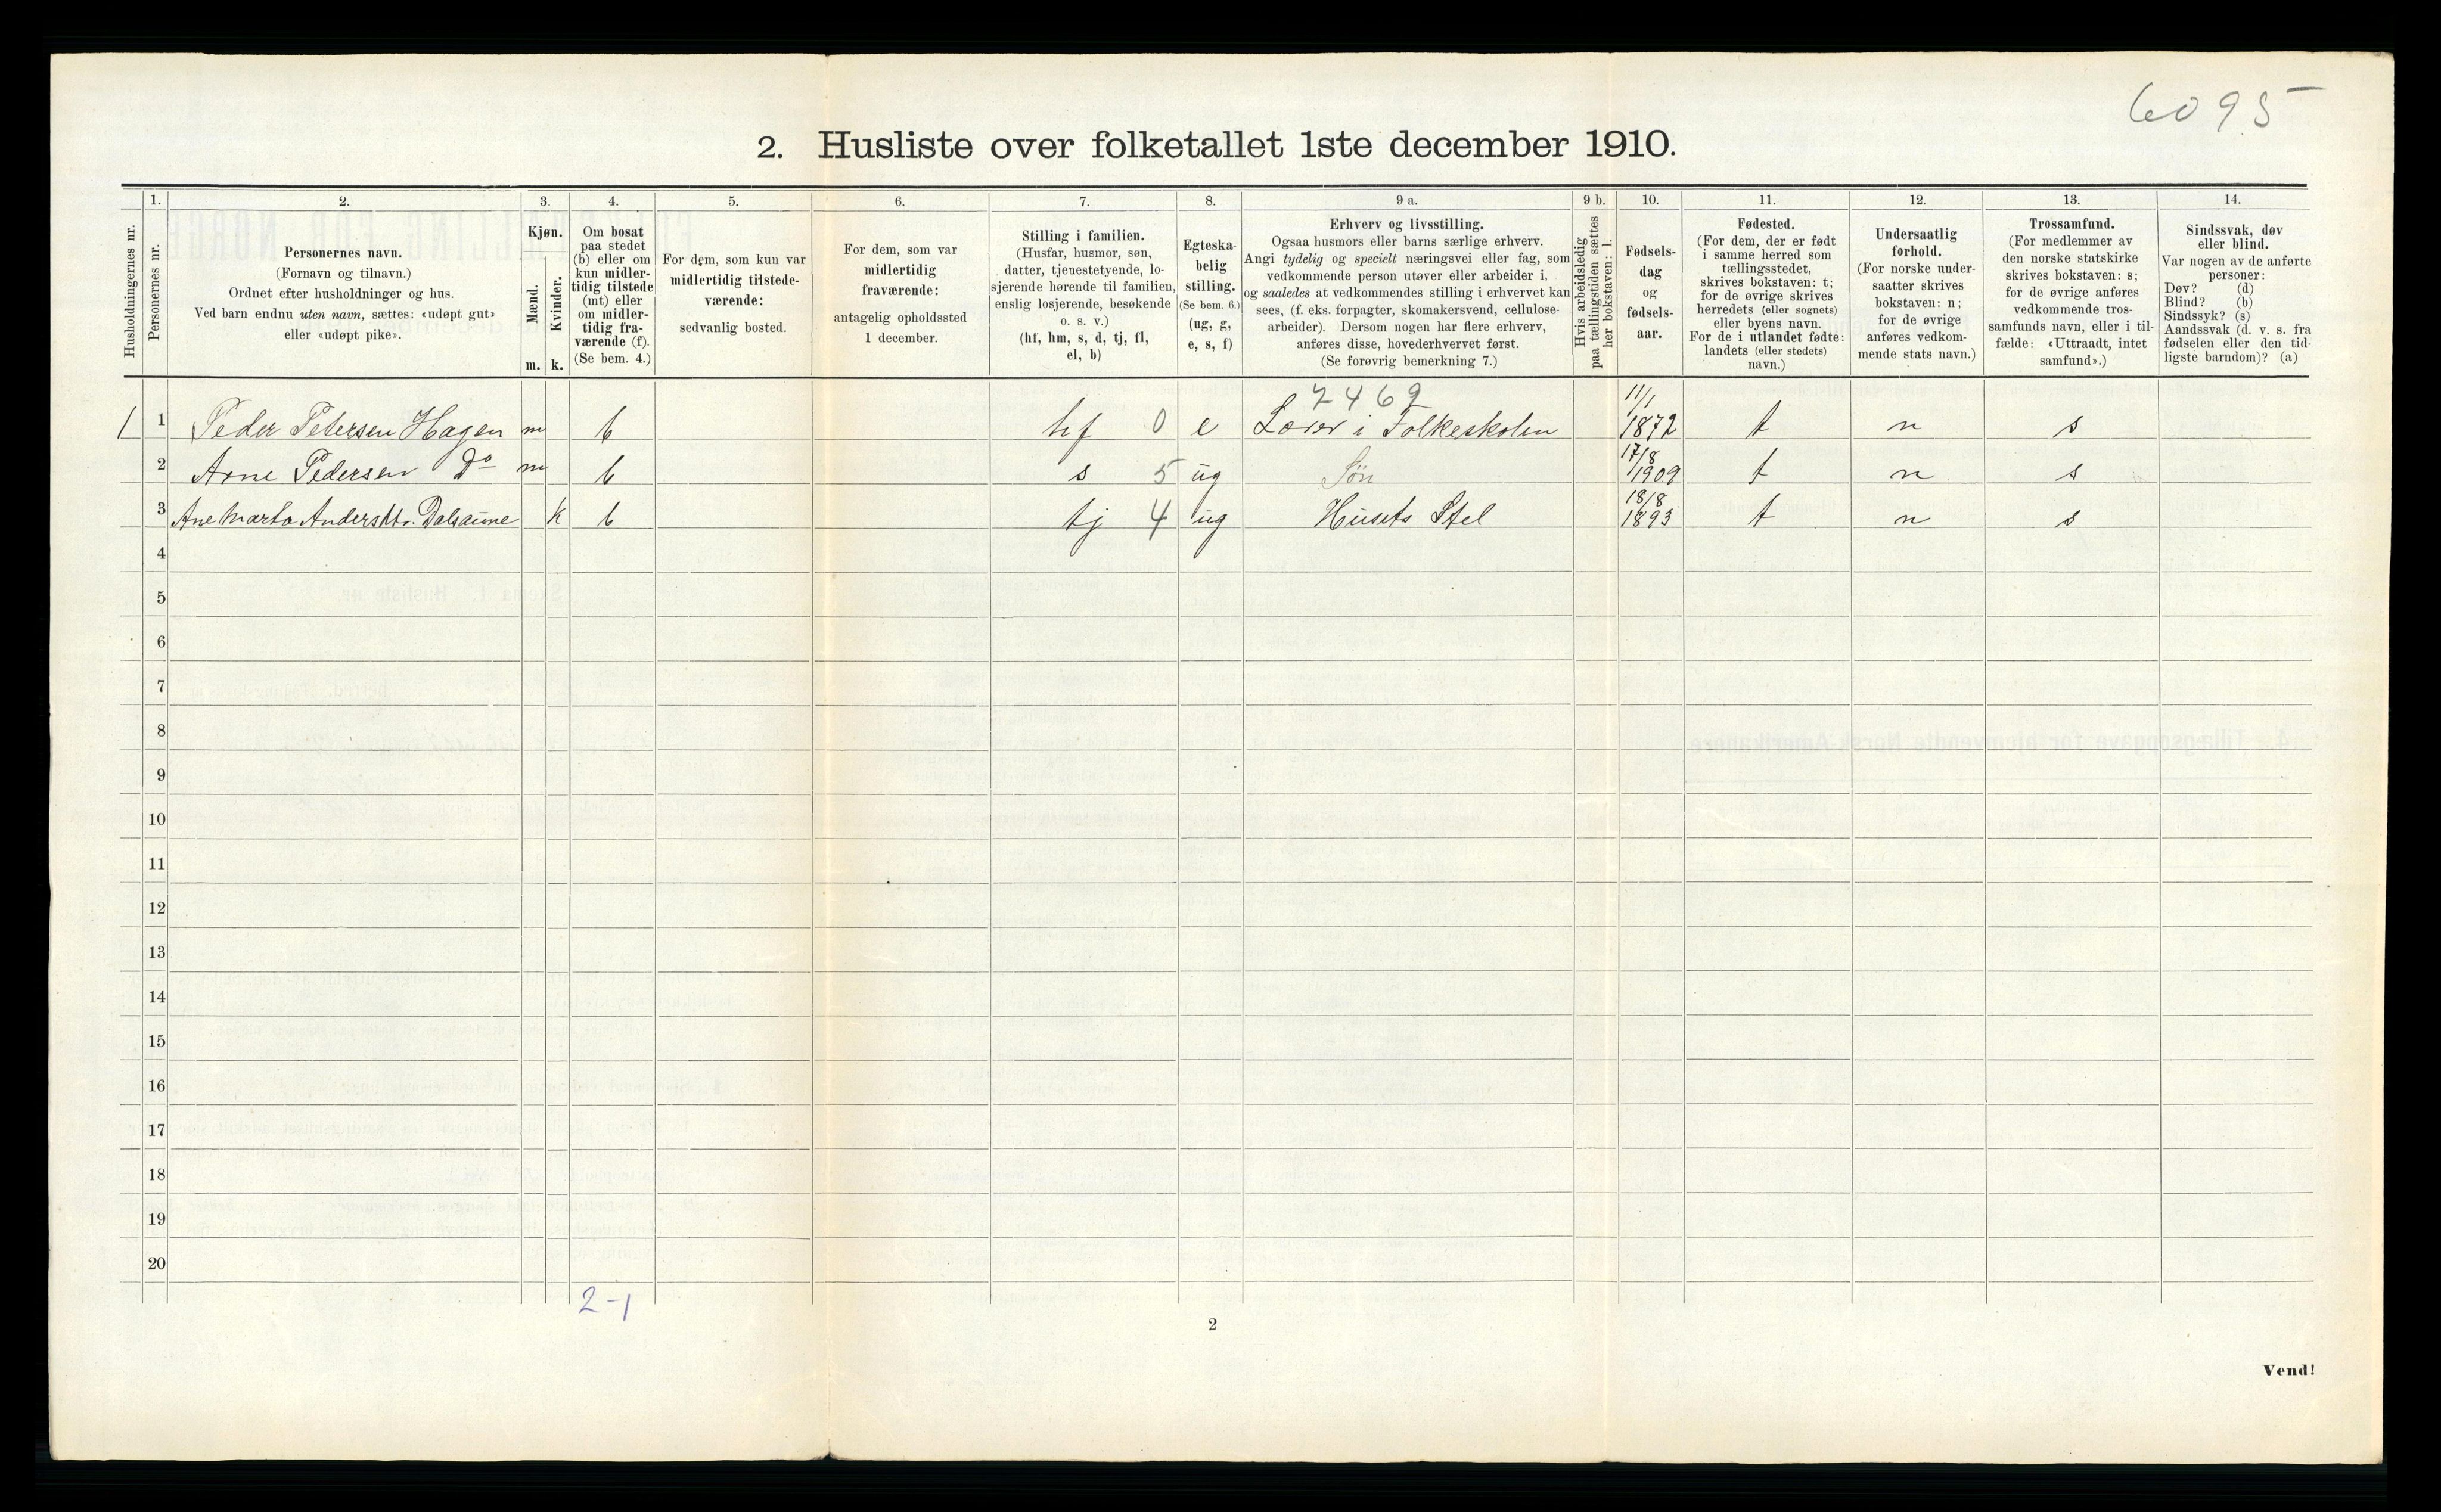 6095
2. Husliste over folketallet 1ste december 1910.
Husholdningernes nr.
1.
Personernes nr.
2.
Personernes navn.
(Fornavn og tilnavn.)
Ordnet efter husholdninger og hus.
Ved barn endnu uten navn, sættes: «udøpt gut»
eller «udøpt pike».
3.
Kjøn.
Mænd.
Kvinder.
m. k.
4.
Om bosat
paa stedet
(b) eller om
kun midler-
tidig tilstede
(mt) eller
om midler-
tidig fra-
værende (f).
(Se bem. 4.)
5.
For dem, som kun var
midlertidig tilstede-
værende:
sedvanlig bosted.
6.
For dem, som var
midlertidig
fraværende:
antagelig opholdssted
1 december.
7.
Stilling i familien.
(Husfar, husmor, søn,
datter, tjenestetyende, lo-
sjerende hørende til familien,
enslig losjerende, besøkende
o. s. v.)
(hf, hm, s, d, tj, fl,
el, b)
8.
Egteska-
belig
stilling.
(Se bem. 6.)
(ug, g,
e, s, f)
9 a.
Erhverv og livsstilling.
Ogsaa husmors eller barns særlige erhverv.
Angi tydelig og specielt næringsvei eller fag, som
vedkommende person utøver eller arbeider i,
og saaledes at vedkommendes stilling i erhvervet kan
sees, (f. eks. forpagter, skomakersvend, cellulose-
arbeider). Dersom nogen har flere erhverv,
anføres disse, hovederhvervet først.
(Se forøvrig bemerkning 7.)
9 b.
Hvis arbeidsledig
paa tællingstiden sættes
her bokstaven: l.
10.
Fødsels-
dag
og
fødsels-
aar.
11.
Fødested.
(For dem, der er født
i samme herred som
tællingsstedet,
skrives bokstaven: t;
for de øvrige skrives
herredets (eller sognets)
eller byens navn.
For de i utlandet fødte:
landets (eller stedets)
navn.)
12.
Undersaatlig
forhold.
(For norske under-
saatter skrives
bokstaven: n;
for de øvrige
anføres vedkom-
mende stats navn.)
13.
Trossamfund.
(For medlemmer av
den norske statskirke
skrives bokstaven: s;
for de øvrige anføres
vedkommende tros-
samfunds navn, eller i til-
fælde: «Uttraadt, intet
samfund».)
14.
Sindssvak, døv
eller blind.
Var nogen av de anførte
personer:
Døv? (d)
Blind? (b)
Sindssyk? (s)
Aandssvak (d. v. s. fra
fødselen eller den tid-
ligste barndom)? (a)
7462
1 1 Peder Petersen Hagen m b hf 0 e Lærer i Folkeskolen 11/1 1872 t n s
2 Arne Pedersen Do m b s 5 ug Søn 17/8 1909 t n s
3 Ane Marta Andersdtr. Dalsaune k b tj 4 ug Husets Stel 18/8 1893 t n s
4
5
6
7
8
9
10
11
12
13
14
15
16
17
18
19
20
2-1
2
Vend!